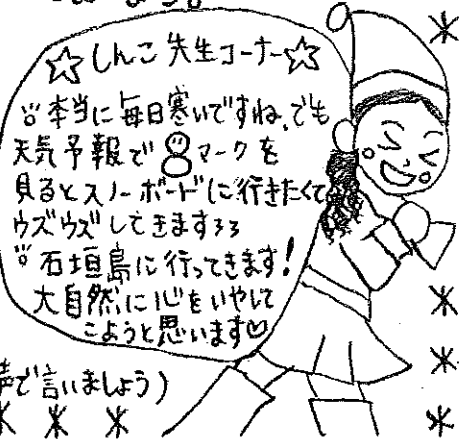 ☆しんこ先生コーナー☆
本当に毎日寒いですね。でも
天気予報で マークを
見るとスノーボードに行きたくて
ウズウズしてきますろろ
石垣島に行ってきます!
大自然に心をいやして
こようと思います♡
声で言いましょう)